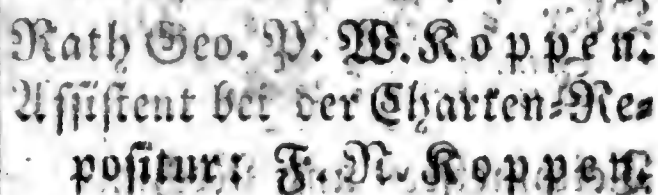 Rath Geo. P. W. Koppen.
Assistent bei der Charten-Re-
positur: F. N. Koppen.